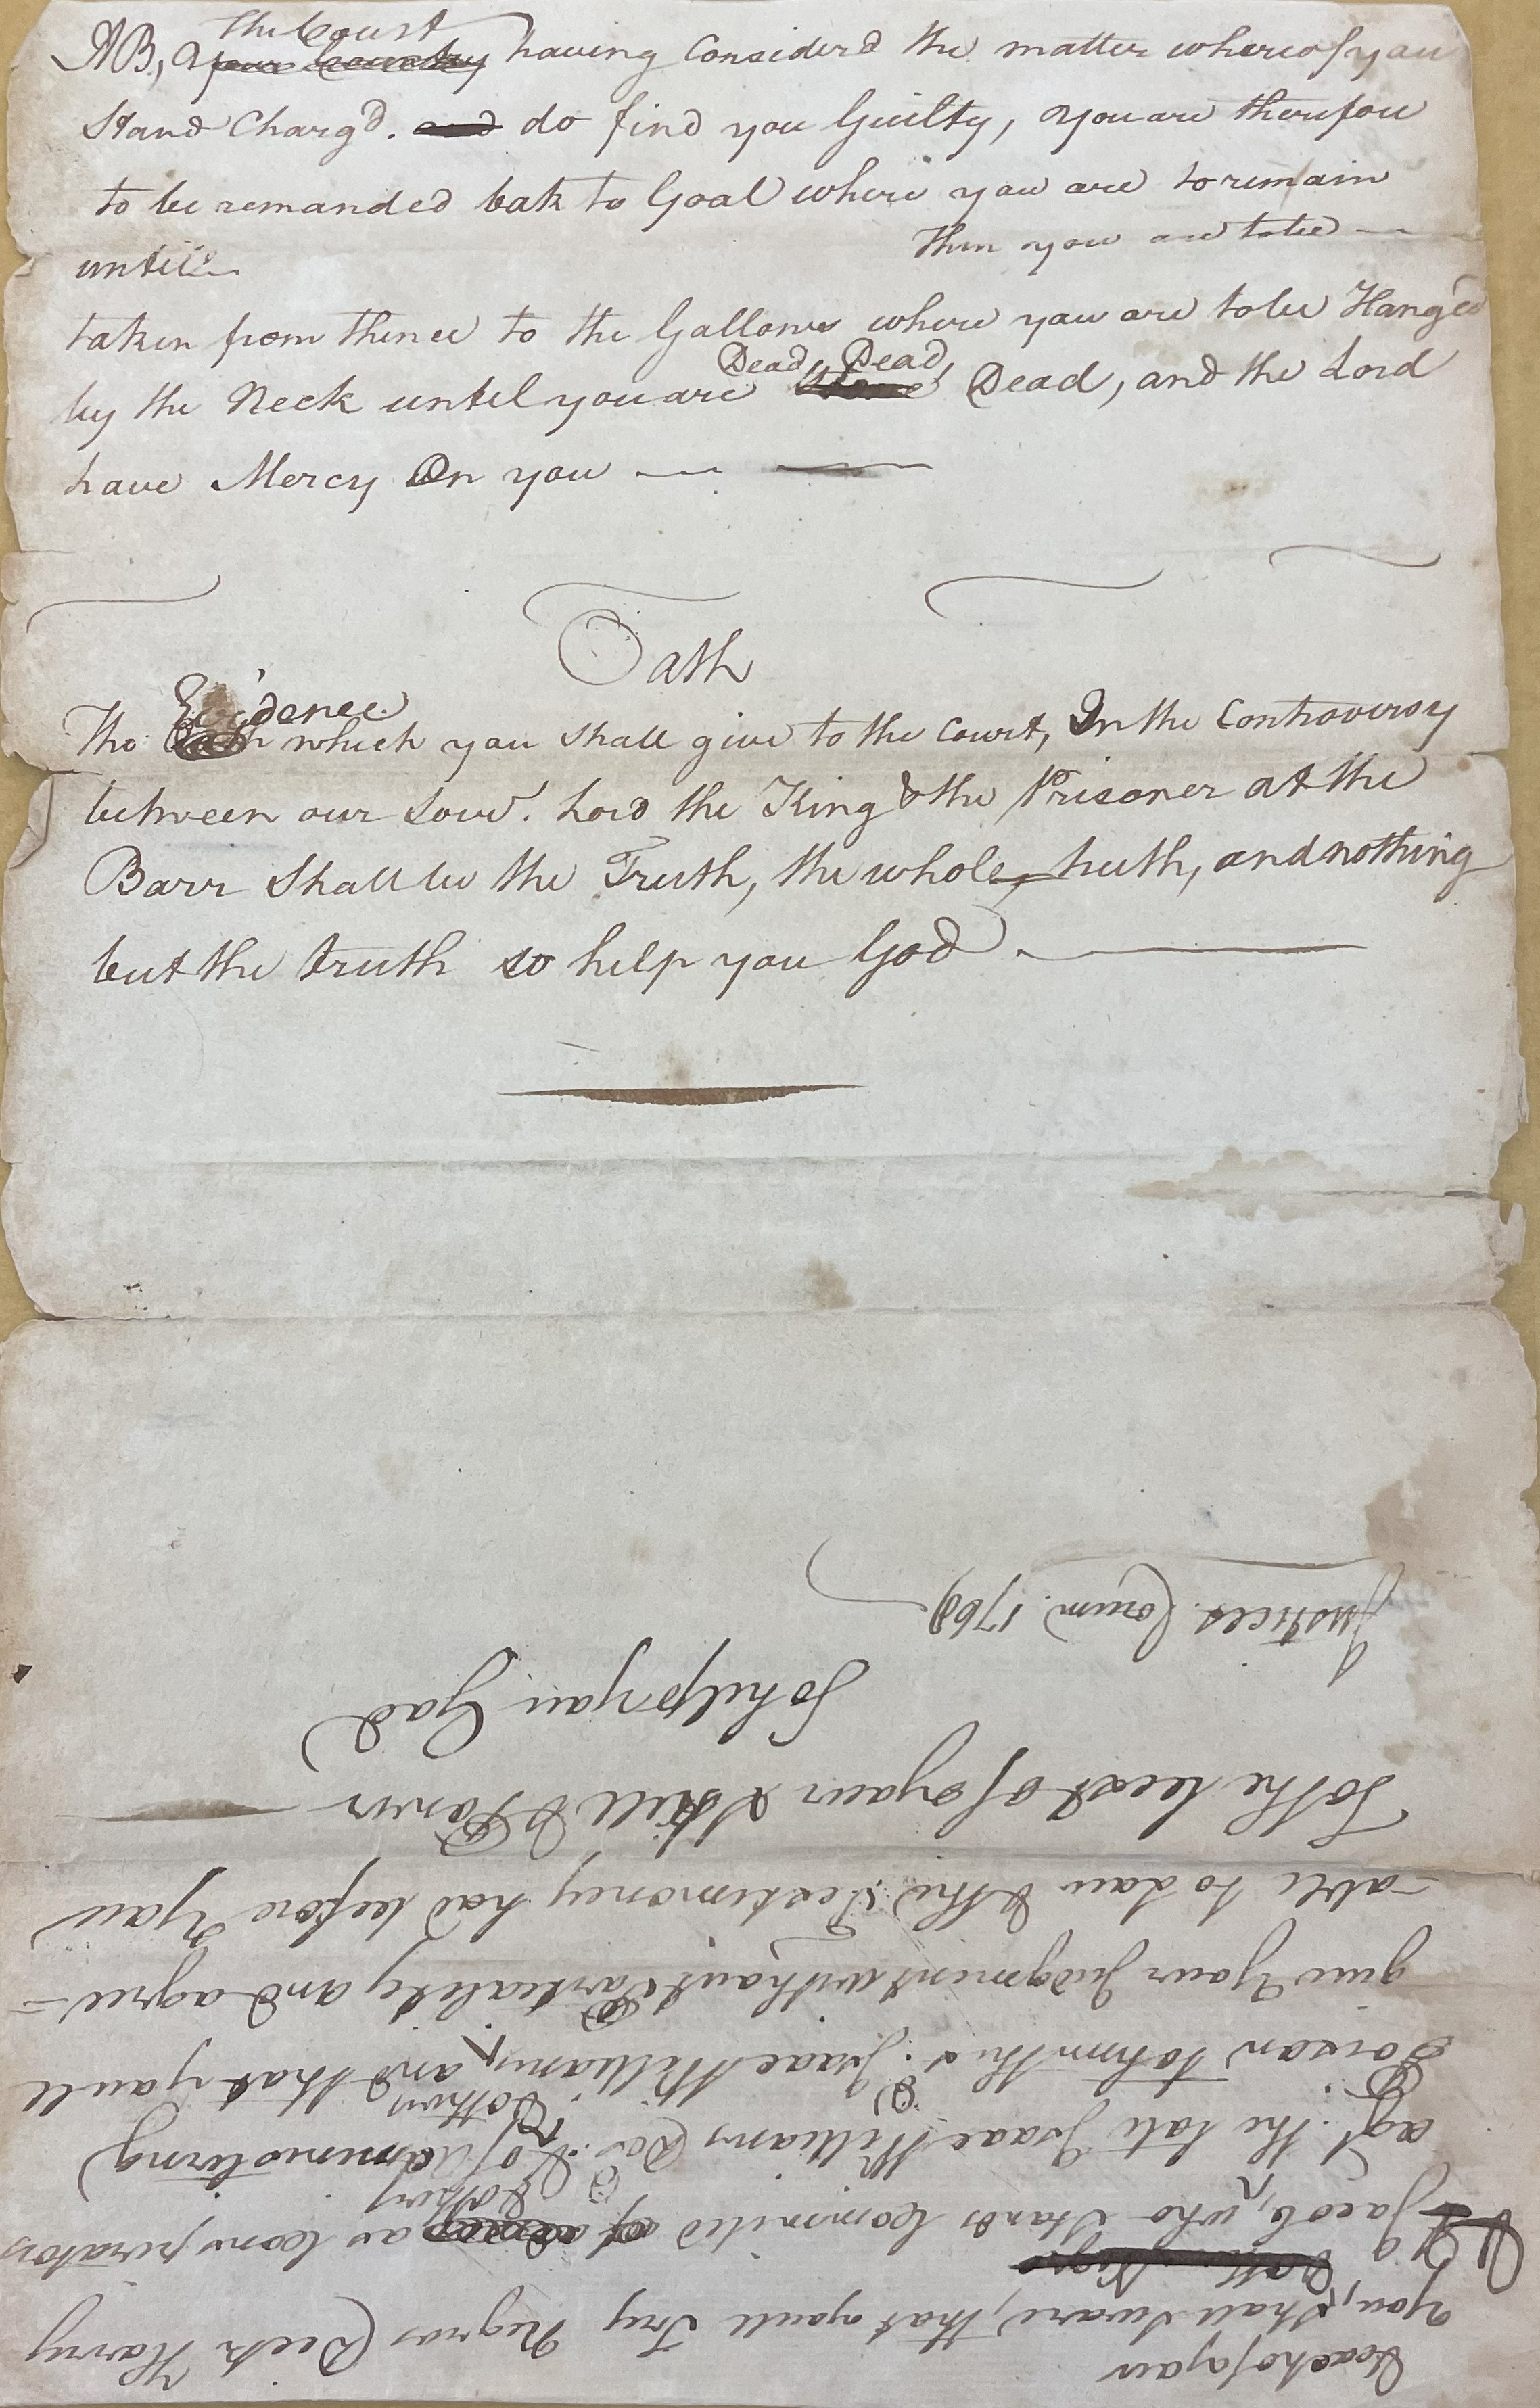 The Court
AB, your Country having Considerd the matter whereof you
Stand Chargd. and do find you Guilty, you are therefore
to be remanded bak to Goal where you are to remain
Then you are to be
until
taken from thence to the Gallows where you are to be Hanged
Dead, Dead,
by the Neck until you are Dead, and the Lord
have Mercy On you
Oath
Evidence
The Oath which you shall give to the Court, In the Controversy
between our Sovr. Lord the King & the Prisoner at the
Barr Shall be the Truth, the whole, truth, and nothing
but the truth so help you God
Each of you
You, shall Sware, that youll Try Negros Dick Harry
& Jacob, who Stands Commited as Conspirators
agt. the late Isaac Williams Decd. & of administering
Poison to him the sd. Isaac Williams, and that youll
give your Judgment without Partiality and agree=
=able to Law & the Testimoney had before you
To the best of your Skill & Power
So help you God
Justices Corum. 1768